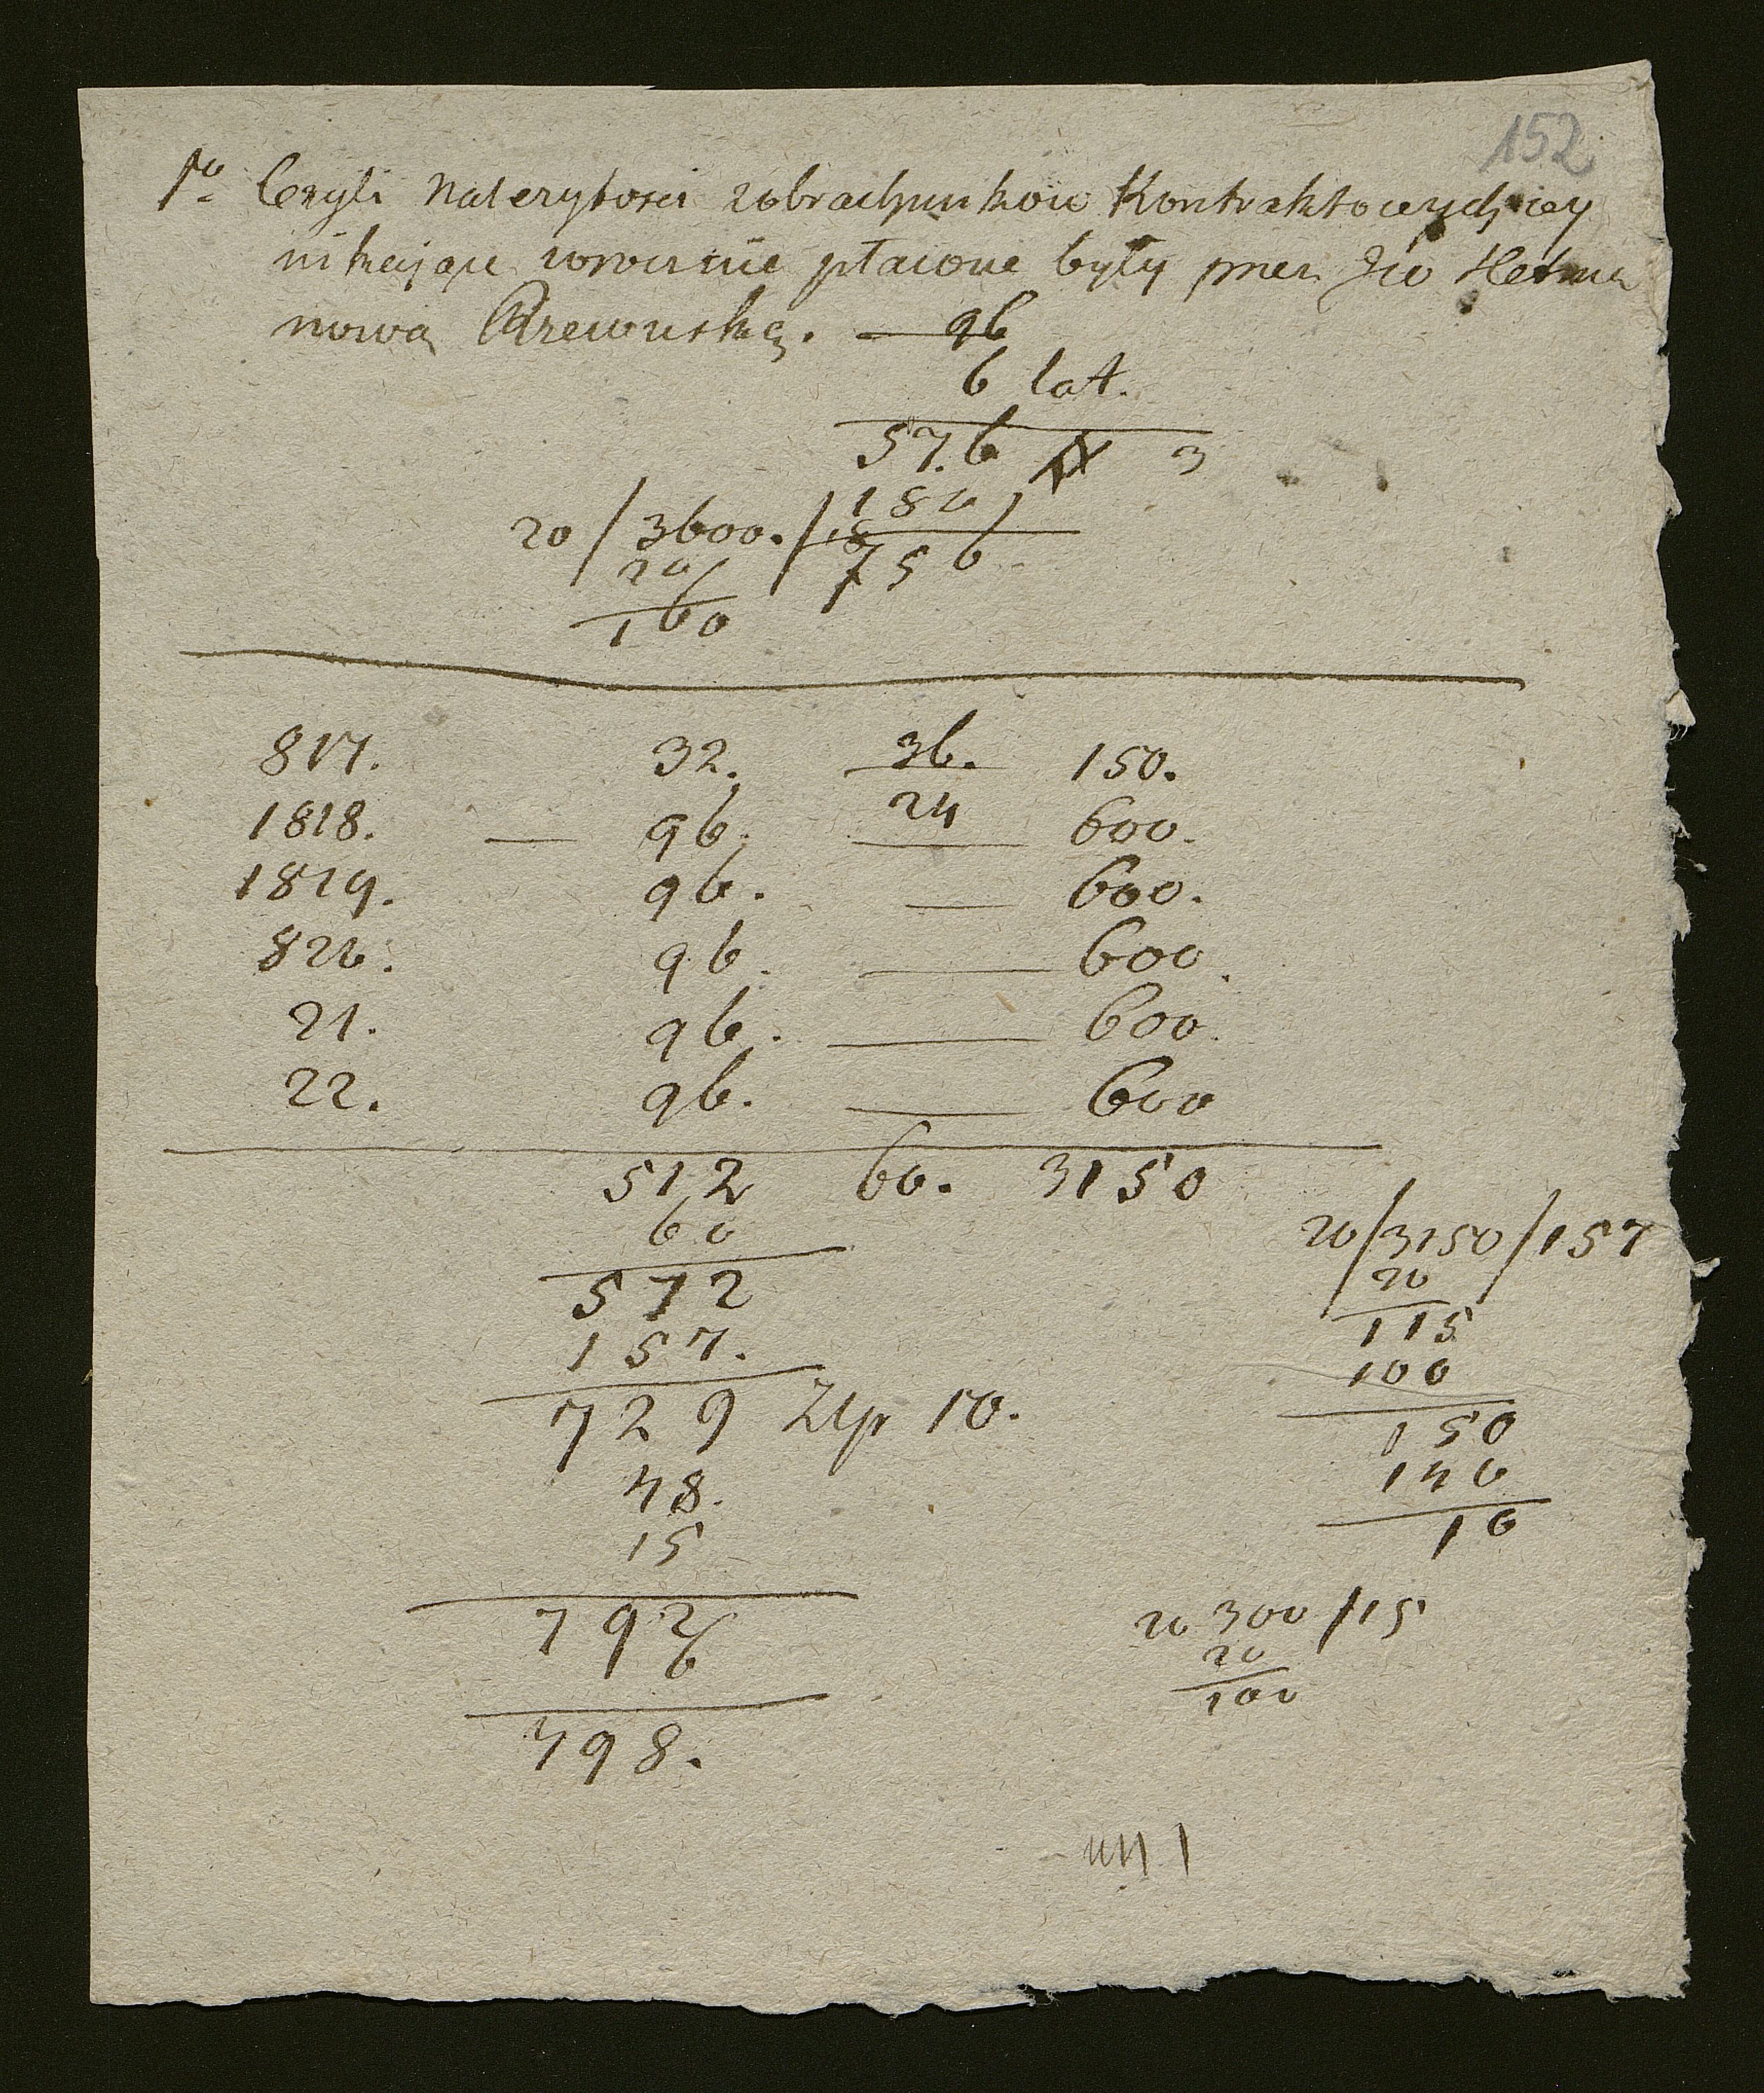 152
1º Czyli Należytości z obrachunków Kontraktowych wy
nikające corocznie płacone były przez Jw Hetma
nową Rzewuską. — 96
6 lat.
576 # 3
180
20 / 3600. / 18
756
20
160
817. 32. 36. 150.
1818. — 96. 24 600.
1819. 96. — 600.
820. 96. — 600.
21. 96. — 600.
22. 96. — 600
512 60. 3150
60
572
157.
729 Złp 10.
48.
15
792
6
798.
20/3150/157
20
115
100
150
140
10
20 300 /15
20
100